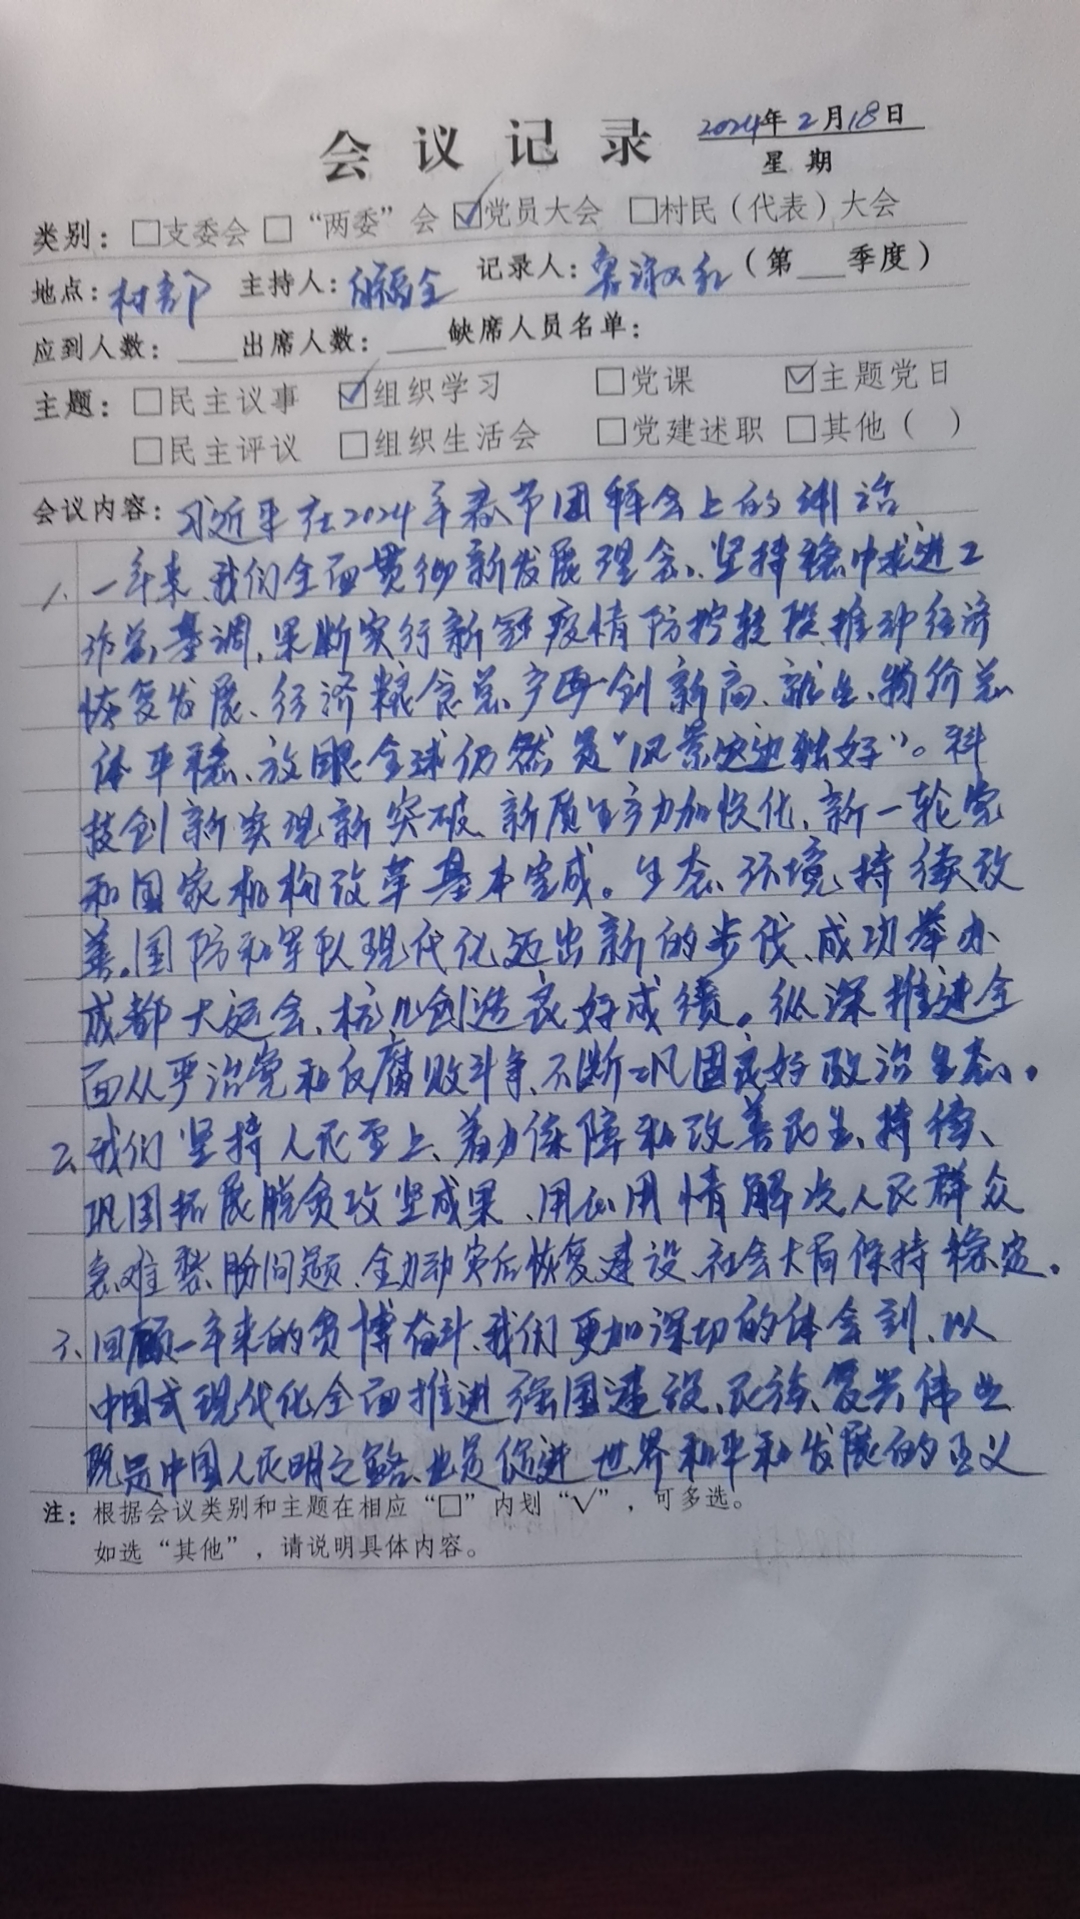 会议记录
2024年2月18日
星期
类别：□支委会 □“两委”会 ☑党员大会 □村民（代表）大会
地点：村部 主持人： 记录人： （第___季度）
应到人数：____出席人数：____缺席人员名单：
主题：□民主议事 ☑组织学习 □党课 ☑主题党日
□民主评议 □组织生活会 □党建述职 □其他（ ）
会议内容：习近平在2024年春节团拜会上的讲话
1、一年来、我们全面贯彻新发展理念、坚持稳中求进工
作总基调，果断实行新冠疫情防控转段推动经济
恢复发展、经济粮食总产再创新高、就业、物价总
体平稳、放眼全球仍然是“风景这边独好”。科
技创新实现新突破、新质生产力加快化，新一轮党
和国家机构改革基本完成。生态环境持续改
善。国防和军队现代化迈出新的步伐、成功举办
成都大运会、杭 创造良好成绩。纵深推进全
面从严治党和反腐败斗争、不断巩固良好政治生态。
2、我们坚持人民至上、着力保障和改善民生、持续、
巩固拓展脱贫攻坚成果、用心用情解决人民群众
急难愁盼问题、全力动灾后恢复建设、社会大局保持稳定。
3、回顾一年来的 博奋斗、我们更加深切的体会到、以
中国式现代化全面推进强国建设、民族复兴伟业
既是中国人民 之路、也是促进世界和平和发展的正义
注：根据会议类别和主题在相应“□”内划“√”，可多选。
如选“其他”，请说明具体内容。